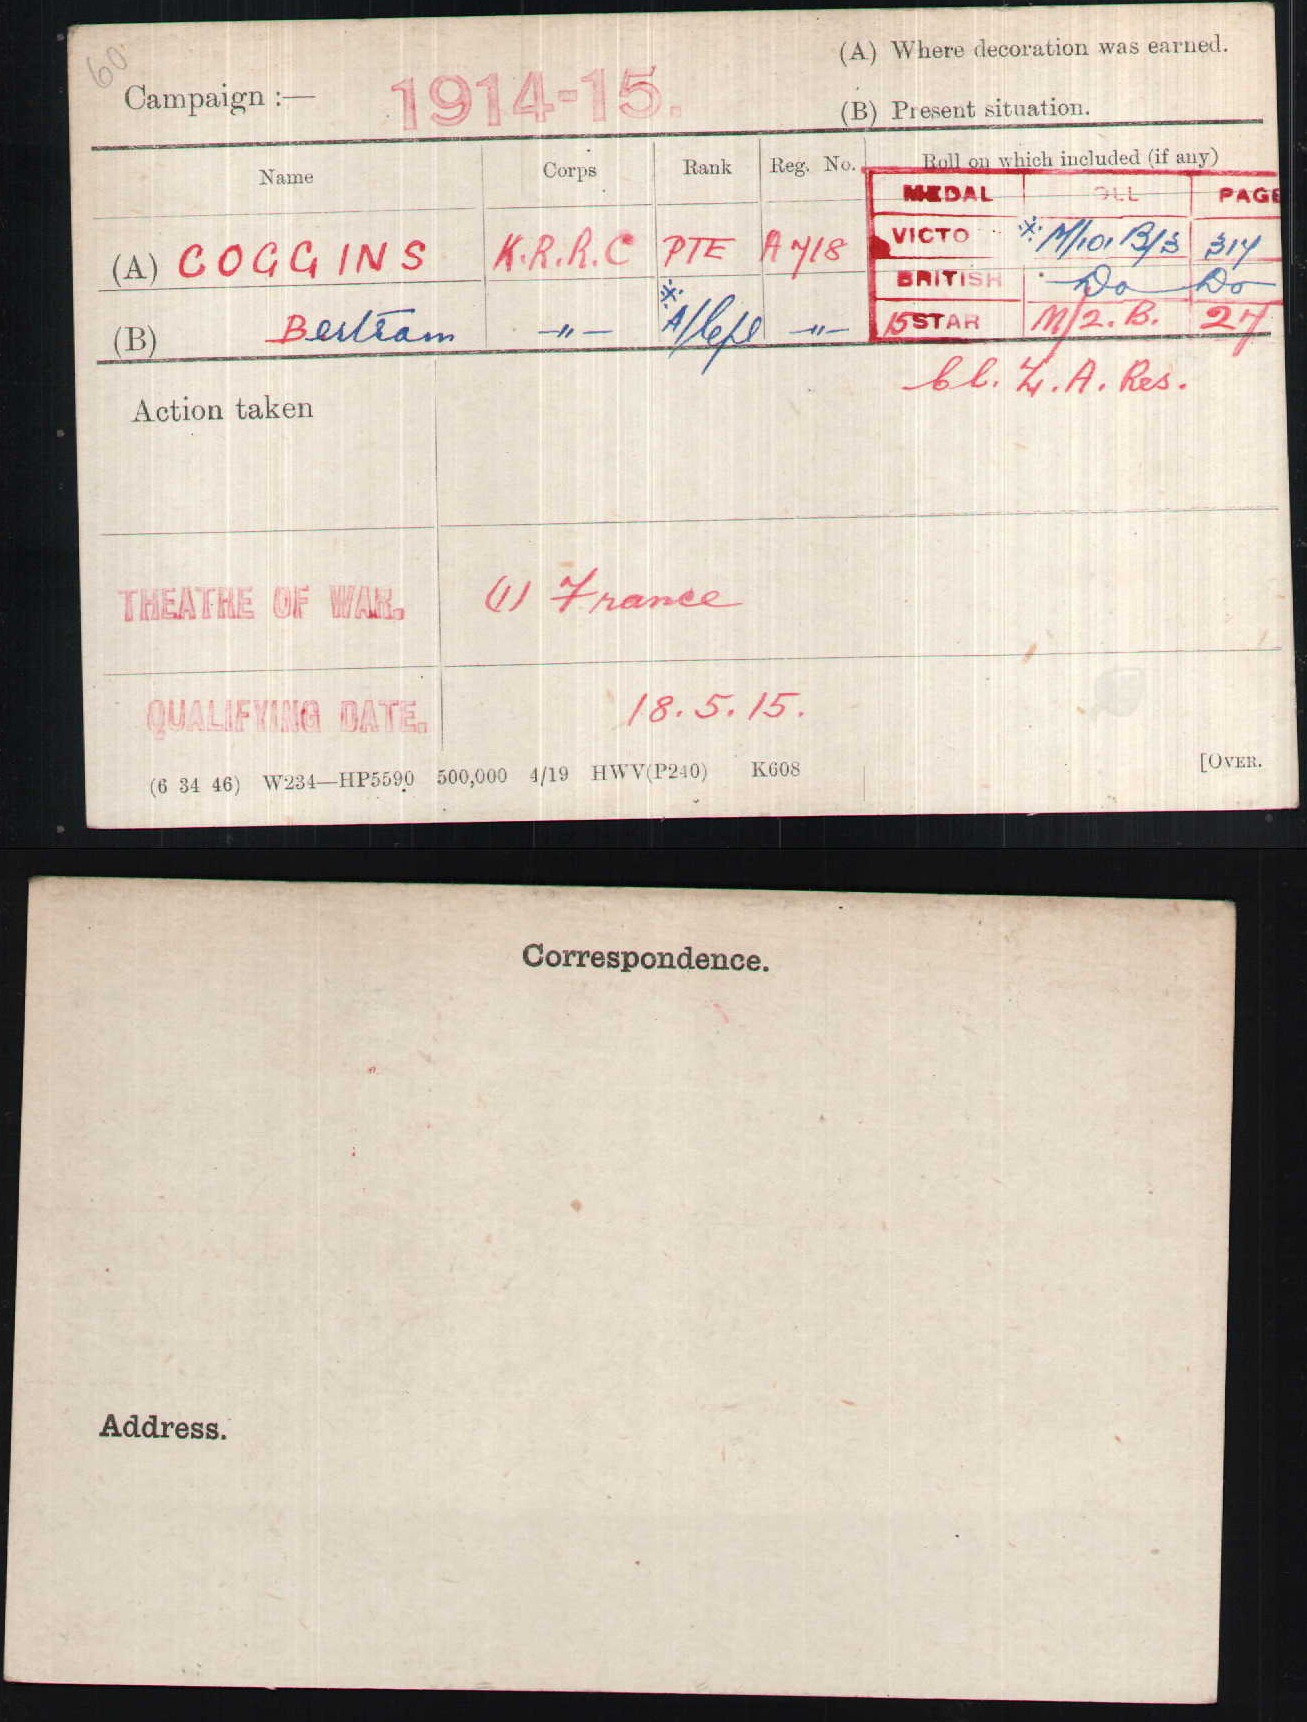 60
(A) Where decoration was earned.
Campaign :— 1914-15.
(B) Present situation.
Name Corps Rank Reg. No. Roll on which included (if any)
MEDAL OLL PAGE
(A) COGGINS K.R.R.C PTE A 718 VICTO * M/101 B/3 317
BRITISH Do Do
(B) Bertram —"— * A/Cpl —"— 15 STAR M/2.B. 27
Cl. Z. A. Res.
Action taken
THEATRE OF WAR. (1) France
QUALIFYING DATE. 18.5.15.
(6 34 46) W234—HP5590 500,000 4/19 HWV(P240) K608 [OVER.
Correspondence.
Address.